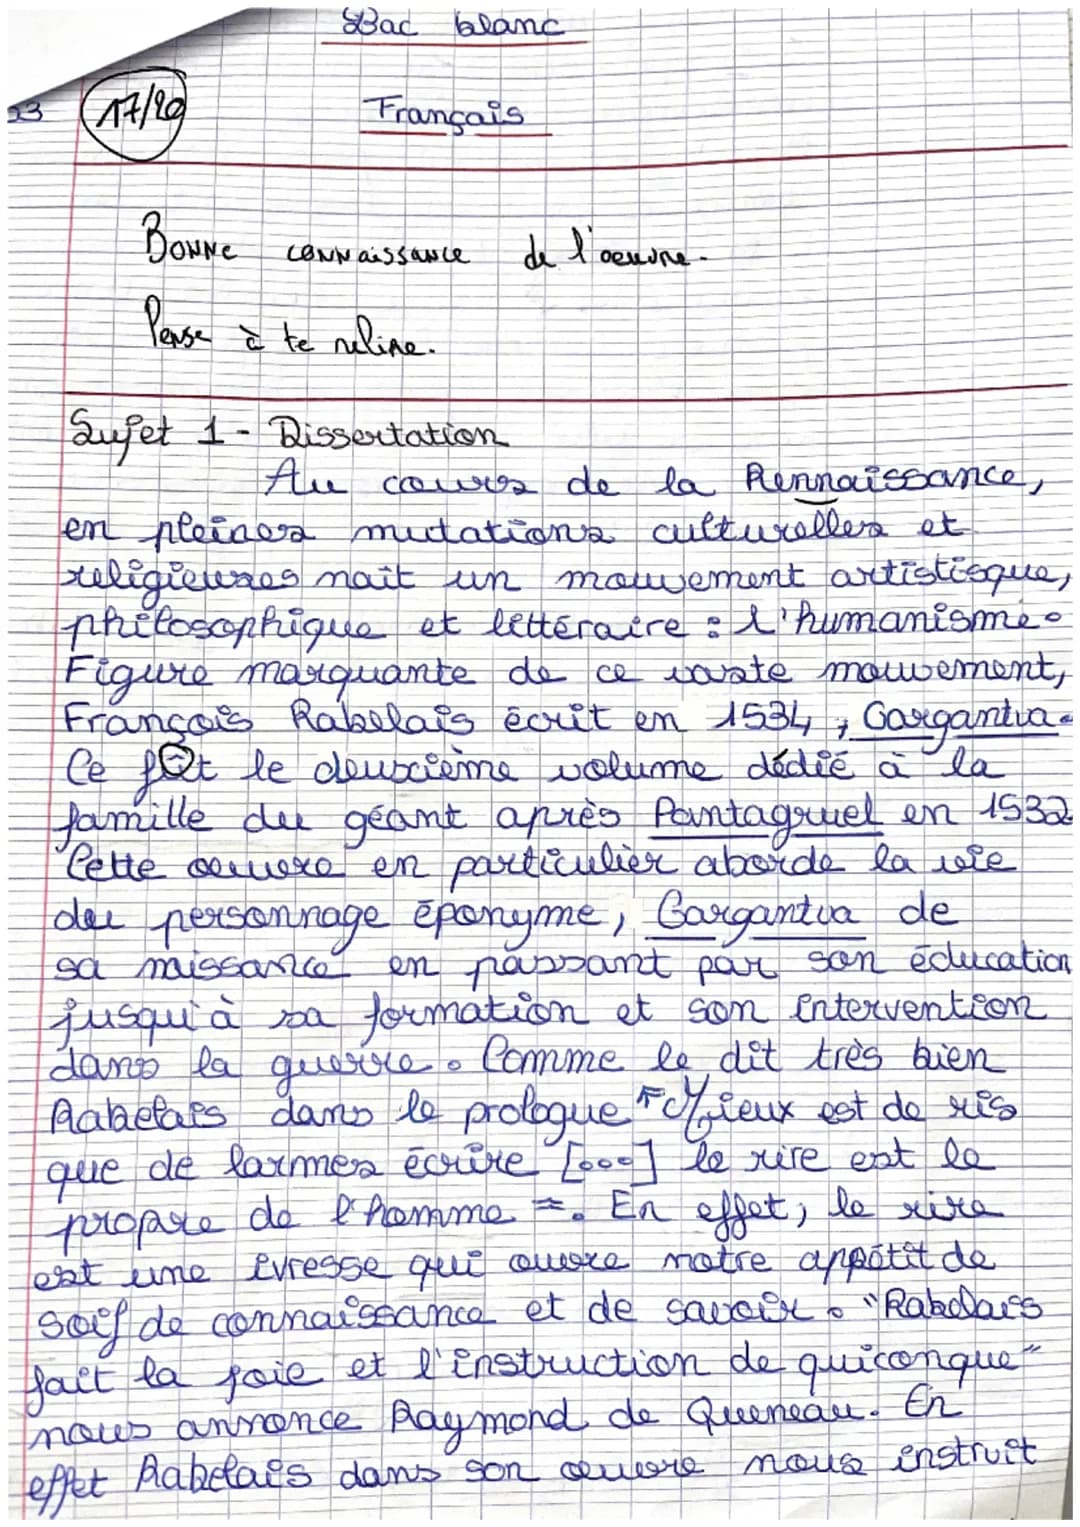 Bac blanc
23 17/20 Français
BONNE connaissance de l'oeuvre.
Pense à te relire.
Sujet 1 - Dissertation
Au cours de la Rennaissance,
en pleines mutations culturelles et
religieuses nait un mouvement artistisque,
philosophique et littéraire : l'humanisme.
Figure marquante de ce vaste mouvement,
François Rabelais écrit en 1534, Gargantua.
Ce fût le deuxième volume dédié à la
famille du géant après Pantagruel en 1532
Cette oeuvre en particulier aborde la vie
du personnage éponyme, Gargantua de
sa naissance en passant par son éducation
jusqu'à sa formation et son intervention
dans la guerre. Comme le dit très bien
Rabelais dans le prologue "Mieux est de ris
que de larmes écrire [...] le rire est le
propre de l'homme". En effet, le rire
est une ivresse qui ouvre notre appétit de
soif de connaissance et de savoir. "Rabelais
fait la joie et l'instruction de quiconque"
nous annonce Raymond de Queneau. En
effet Rabelais dans son oeuvre nous instruit